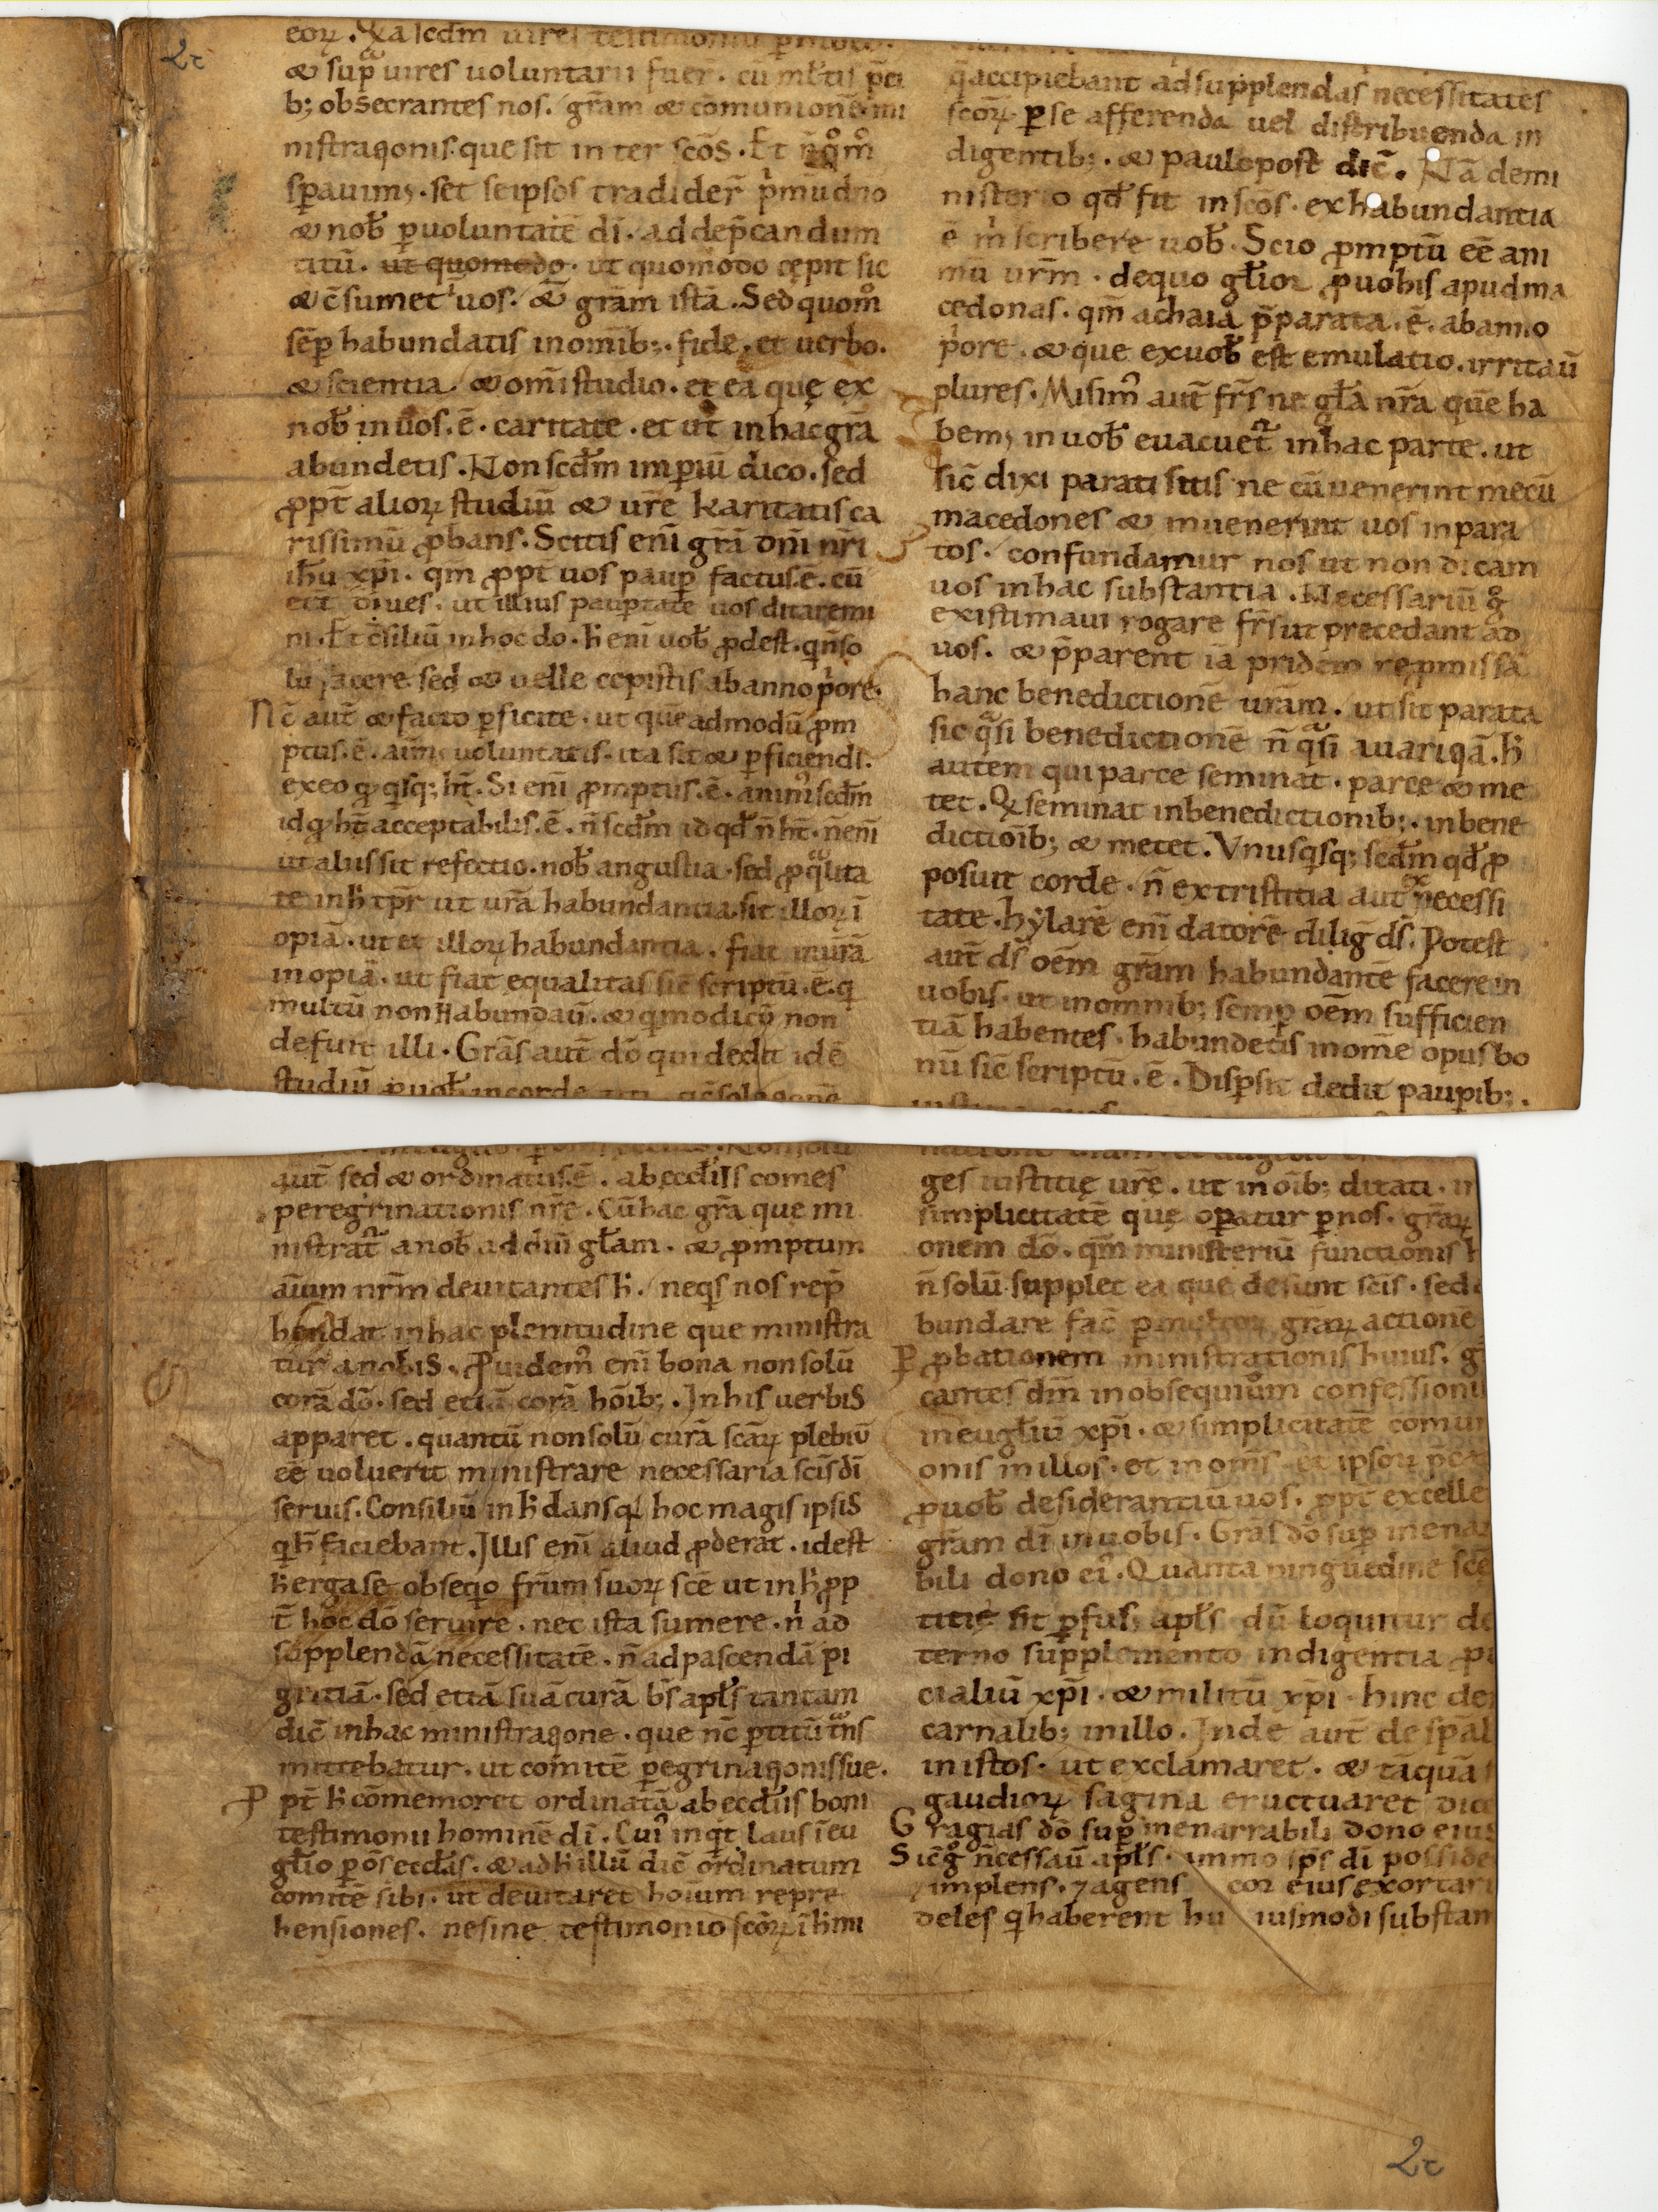 2c
eoꝝ. Quia scdm̄ uires testimoniū
⁊ sup̄ uires uoluntarii fuer̄. cū ml̄tis p̄ci
b; obsecrantes nos. grām ⁊ cōmunionē mi
nistrationis que sit inter scōs. Et n̄
sperauim;. set seipsos tradider̄ pⁱmū dn̄o
⁊ nob̄ p̱ uoluntatē dī. ad dep̄candum
titū. ut quomodo. ut quomodo cępit sic
⁊ c̄sumet uos. ⁊ grām istā. Sed quom̊
sēp habundatis in omīb;. fide. et uerbo.
⁊ scientia. ⁊ om̄i studio. et ea quę ex
nob̄ in uos. ē. caritate. et ut in hac grā
abundetis. Non scdm̄ imp̱iū dico. sed
ꝓpt̄ alioꝝ studiū ⁊ ur̄e karitatis ca
rissimū ꝓbans. Scitis enī grā dn̄i nr̄i
ih̄u xp̄i. qm̄ ꝓpt̄ uos paup̱ factus. ē. cū
eēt diues. ut illius paup̱tate uos ditaremi
ni. Et c̄siliū in hoc do. h̄ enī uob̄ ꝓdest. qⁱ n̄ so
lū facere sed ⁊ uelle cepistis ab anno pⁱore.
Nc̄ aut̄ ⁊ facto p̱ficite. ut quēadmodū ꝓm
ptus. ē. aīm; uoluntatis. ita sit ⁊ p̱ficiendi.
ex eo qd̄ qⁱsq; ht̄. Si enī ꝓmptus. ē. animꝰ scdm̄
id qd̄ ht̄ acceptabilis. ē. n̄ scdm̄ id qd̄ n̄ ht̄. n̄ enī
ut aliis sit refectio. nob̄ angustia. sed ꝓ qᵃlita
te in h̄ tp̄r ut urā habundantia sit illoꝝ ī
opiā. ut et illoꝝ habundantia. fiat in urā
inopiā. ut fiat equalitas sic̄ scriptū. ē. qⁱ
multū non habundaū. ⁊ qⁱ modicū non
defuit illi. Grās aut̄ dō qui dedit idē
studiū ꝓ uob̄ in corde titi. c̄solationē
qᵃ accipiebant ad supplendas necessitates
scōꝝ. p̱ se afferenda uel distribuenda in
digentib;. ⁊ paulo post dic̄. Nā de mi
nisterio qd̄ fit in scōs. ex habundantia
ē mⁱ scribere uob̄. Scio ꝓmptū eē ani
mū ur̄m. de quo gl̄ior ꝓ uobis apud ma
cedonas. qm̄ achaia p̄parata. ē. ab anno
pⁱore. ⁊ que ex uob̄ est emulatio. irritaū
plures. Misimꝰ aut̄ fr̄s ne gl̄a nr̄a quē ha
bem; in uob̄ euacuet̄ in hac parte. ut
sic̄ dixi parati sitis ne cū uenerint mecū
macedones ⁊ inuenerint uos inpara
tos. confundamur nos ut non dicam
uos in hac substantia. Necessariū g̊
existimaui rogare fr̄s ut precedant ad
uos. ⁊ p̄parent iā pridem rep̱missā
hanc benedictionē urām. ut sit parata
sic qᵃsi benedictionē n̄ qᵃsi auaritiā. h̄
autem qui parce seminat. parce ⁊ me
tet. Qⁱ seminat in benedictionib;. in bene
dictioīb; ⁊ metet. Vnusqⁱsq; scdm̄ qd̄ ꝓ
posuit corde. n̄ ex tristitia aut ex necessi
tate. hylarē enī datorē diliḡ d̄s. Potest
aut̄ d̄s oēm grām habundantē facere in
uobis. ut in omnib; semp̱ oēm sufficien
tiā habentes. habundetis in om̄e opus bo
nū sic̄ scriptū. ē. Disp̱sit dedit paup̱ib;.
aut̄ sed ⁊ ordinatus. ē. ab eccl̄iis comes
peregrinationis nr̄e. Cū hac grā que mi
nistrat̄ a nob̄ ad dn̄i gl̄am. ⁊ ꝓmptum
aīum nr̄m deuitantes h̄. neqⁱs nos rep̄
hendat in hac plenitudine que ministra
tur a nobis. Ꝓuidemꝰ enī bona non solū
corā dō. sed etiā corā hōib;. In his uerbis
apparet. quantū non solū curā scāꝝ plebiū
eē uoluerit ministrare necessaria scīs dī
seruis. Consiliū in h̄ dans qⁱ hoc magis ipsis
qⁱ h̄ faciebant. Illis enī aliud ꝓderat. id est
h̄ erga se obseqⁱo fr̄um suoꝝ scē ut in h̄ ꝓp
t̄ hoc dō seruire. nec ista sumere. nⁱ ad
supplendā necessitatē. n̄ ad pascendā pi
gritiā. sed etiā suā curā b̄s apl̄s tantam
dic̄ in hac ministratione. que nc̄ p̱ titū tᵃns
mittebatur. ut comitē p̱egrinationis sue.
Ꝓpt̄ h̄ cōmemoret ordinatā ab eccl̄iis boni
testimonii hominē dī. Cuiꝰ inqⁱt laus ī eu
gl̄io p̱ oīs eccl̄as. ⁊ ad h̄ illū dic̄ ordinatum
comitē sibi. ut deuitaret hoīum repre
hensiones. ne sine testimonio scōꝝ ī h̄ mi
ges iustitię ur̄e. ut in oīb; ditati. in
simplicitatē quę op̱atur p̱ nos. grāꝝ
onem dō. qm̄ ministeriū functionis h
n̄ solū supplet ea que desunt scīs. sed
bundare fac̄ p̱ multoꝝ grāꝝ actione
P̱ ꝓbationem ministrationis huius. g
cantes dm̄ in obsequium confessioni
in eugl̄iū xp̄i. ⁊ simplicitatē comun
onis in illos. et in om̄s. et ipsoꝝ
ꝓ uob̄ desiderantiū uos. ꝓpt̄ excelle
grām dī in uobis. Grās dō sup̱ inenar
bili dono eiꝰ. Quanta pinguedine scē
titie fit p̱fus; apl̄s dū loquitur de
terno supplemento indigentia ꝓ
cialiū xp̄i. ⁊ militū xp̄i. hinc de
carnalib; in illo. Inde aut̄ de sp̄al
in istos. ut exclamaret. ⁊ tāquā
gaudioꝝ sagina eructuaret dice
Gratias dō sup̱ inenarrabili dono eius
Sic̄ g̊ n̄ cessaū apl̄s. immo sp̄s dī posside
⁊ implens. ⁊ agens cor eius exortari
deles qⁱ haberent hu iusmodi substan
2c